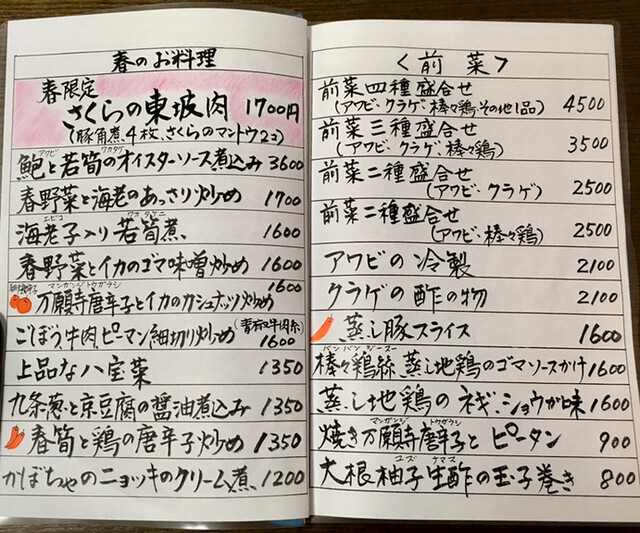 春のお料理
春限定
さくらの東坡肉 1700円
(豚角煮4枚、さくらのマントウ2コ)
アワビ ワカタケ
鮑と若筍のオイスターソース煮込み 3600
春野菜と海老のあっさり炒め 1700
エビコ ワカタケニ
海老子入り若筍煮 1600
春野菜とイカのゴマ味噌炒め 1600
マンガンジトウガラシ 1600
万願寺唐辛子とイカのカシュナッツ炒め
ごぼう牛肉ピーマン細切り炒め 1600
上品な八宝菜 1350
九条葱と京豆腐の醤油煮込み 1350
春筍と鶏の唐辛子炒め 1350
かぼちゃのニョッキのクリーム煮 1200
<前菜>
前菜四種盛合せ
(アワビ・クラゲ、棒々鶏その他1品) 4500
前菜三種盛合せ
(アワビ・クラゲ、棒々鶏) 3500
前菜二種盛合せ
(アワビ、クラゲ) 2500
前菜二種盛合せ
(アワビ、棒々鶏) 2500
アワビの冷製 2100
クラゲの酢の物 2100
蒸し豚スライス 1600
バンバンジースー
棒々鶏絲 蒸し地鶏のゴマソースかけ 1600
蒸し地鶏のネギ、ショウガ味 1600
マンガンジ トウガラシ
焼き万願寺唐辛子と ピータン 900
ユズ ナマス
大根柚子生酢の玉子巻き 800